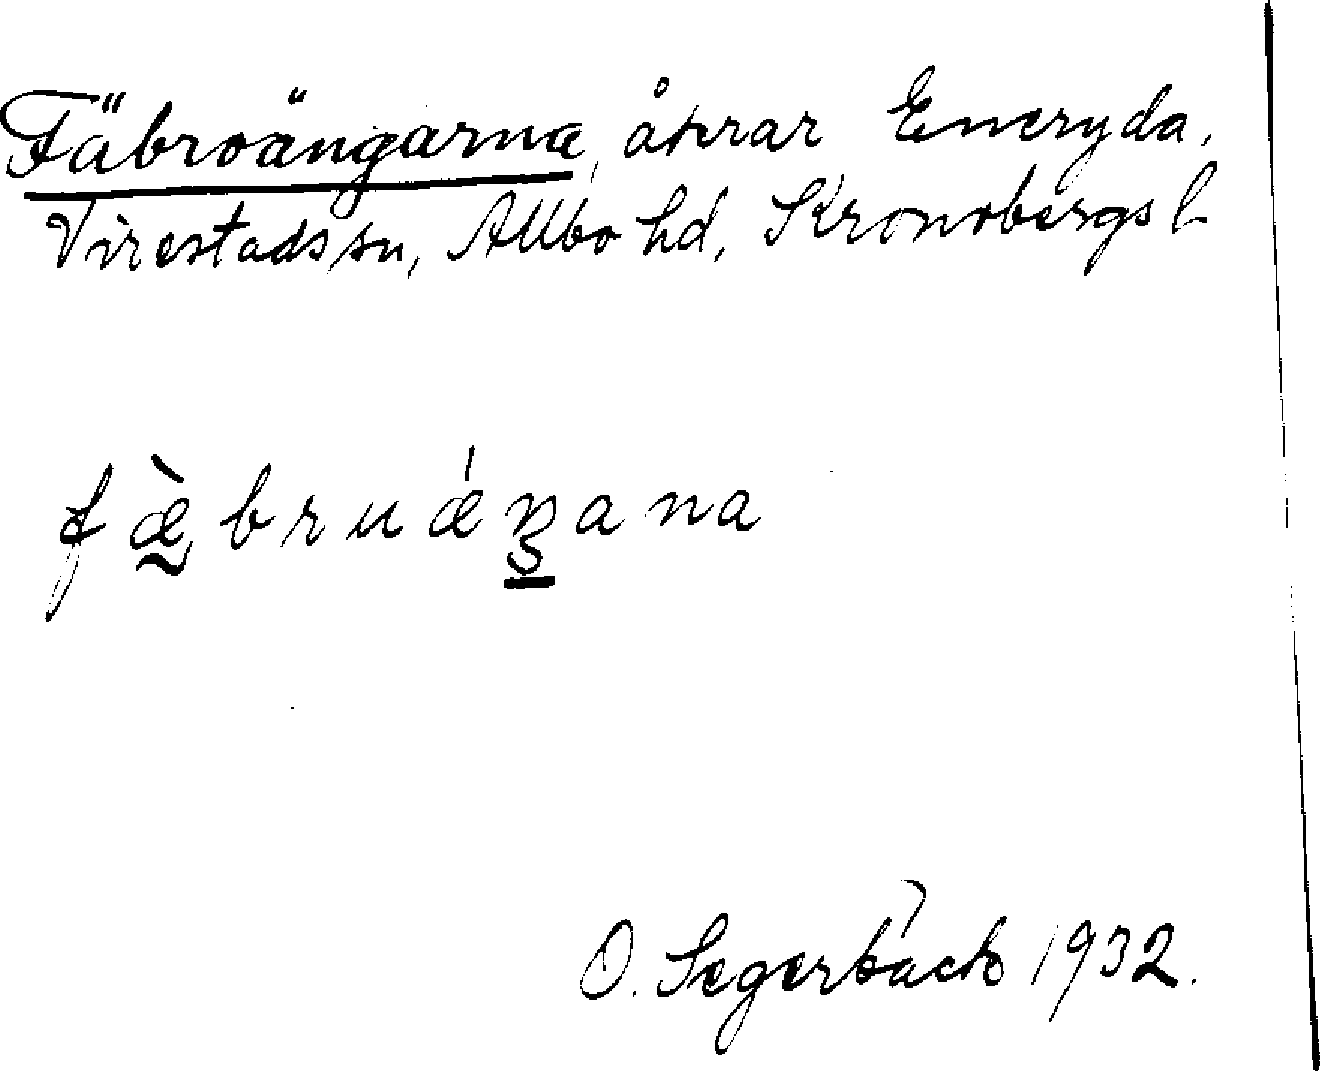 Fäbroängarna, åkrar Eneryda,
Virestads sn, Allbo hd, Kronobergs l
fæ̀bruǽŋana
O. Segerbäck 1932.